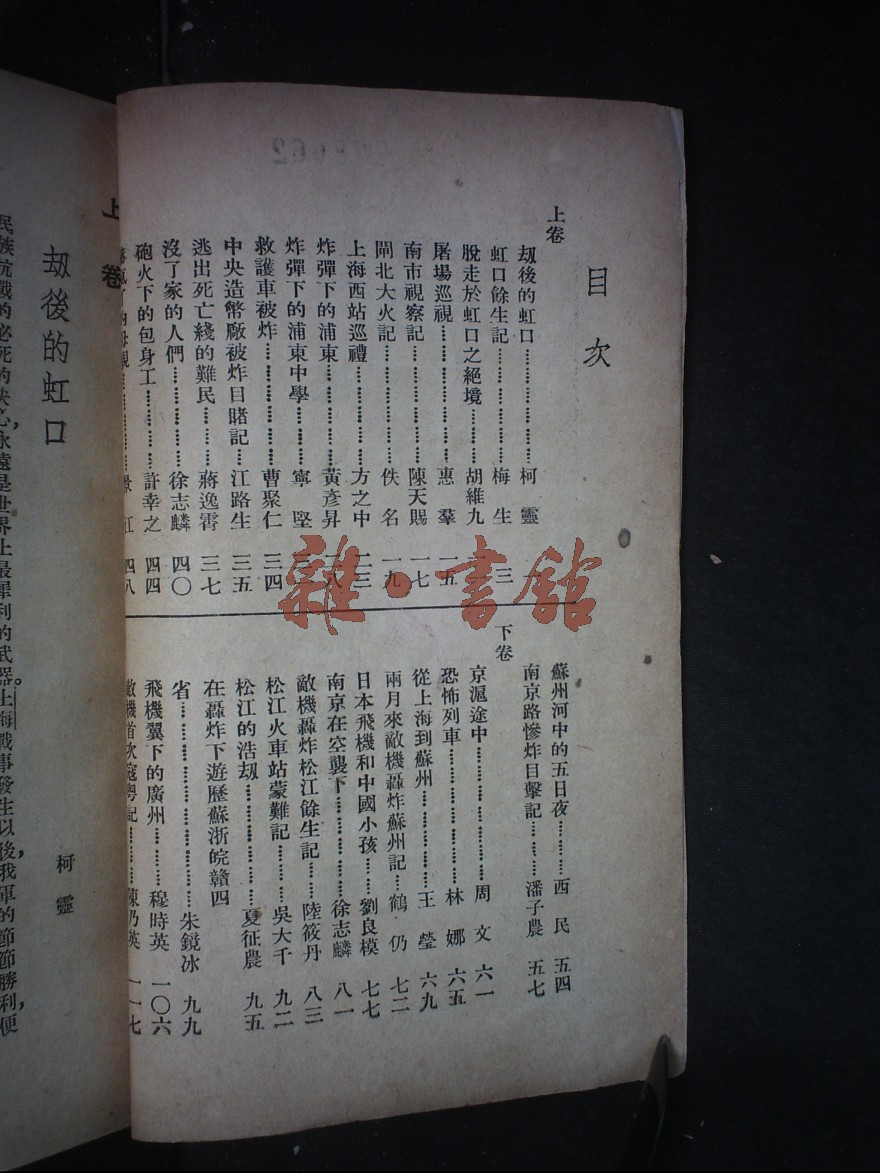 目次
上卷
劫後的虹口……柯靈 一
虹口餘生記……梅生 三
脫走於虹口之絕境……胡維九
屠場巡視……惠羣 一五
南市視察記……陳天賜 一七
閘北大火記……佚名 一九
上海西站巡禮……方之中 二三
炸彈下的浦東……黃彥昇
炸彈下的浦東中學……寧堅
救護車被炸……曹聚仁 三四
中央造幣廠被炸目賭記……江路生 三五
逃出死亡綫的難民……蔣逸霄 三七
沒了家的人們……徐志麟 四〇
砲火下的包身工……許幸之 四四
母親……景江 四八
蘇州河中的五日夜……西民 五四
南京路慘炸目擊記……潘子農 五七
下卷
京滬途中……周文 六一
恐怖列車……林娜 六五
從上海到蘇州……王瑩 六九
兩月來敵機轟炸蘇州記……鶴仍 七二
日本飛機和中國小孩……劉良模 七七
南京在空襲下……徐志麟 八一
敵機轟炸松江餘生記……陸筱丹 八三
松江火車站蒙難記……吳大千 九二
松江的浩劫……夏征農 九五
在轟炸下遊歷蘇浙皖贛四
省……朱鏡冰 九九
飛機翼下的廣州……穆時英 一〇六
敵機首次寇粵記……陳乃英 一一七
上卷
劫後的虹口
柯靈
民族抗戰的必死的決心，永遠是世界上最犀利的武器。上海戰事發生以後，我軍的節節勝利，便
雜·書館